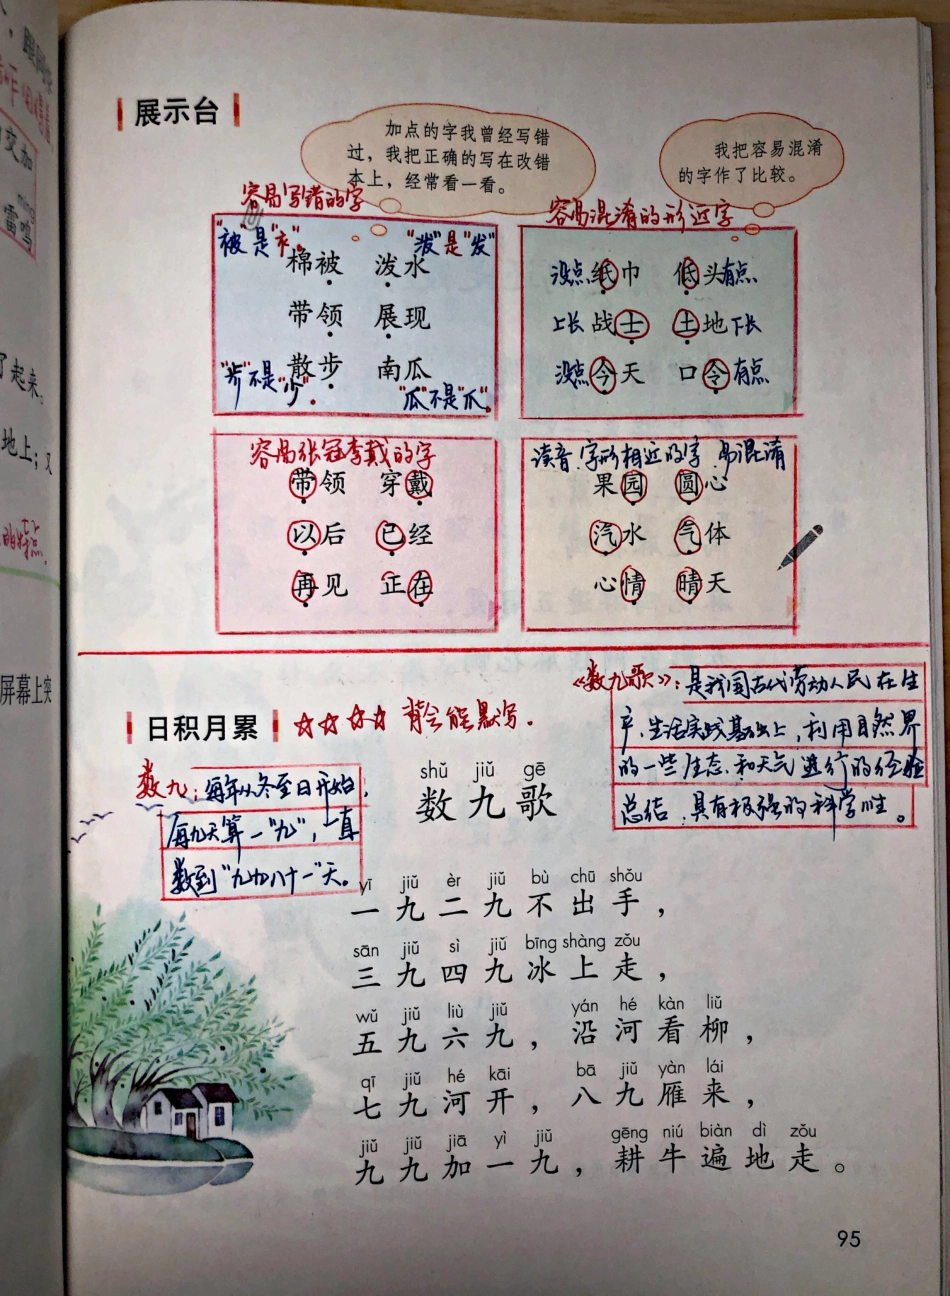 展示台
加点的字我曾经写错
过，我把正确的写在改错
本上，经常看一看。
我把容易混淆
的字作了比较。
容易写错的字
"被"是"衤"。 "泼"是"发"
棉被 泼水
带领 展现
散步 南瓜
"步"不是"少"。 "瓜"不是"爪"。
容易混淆的形近字
没点 纸巾 低头 有点
上长 战士 土地 下长
没点 今天 口令 有点
容易张冠李戴的字
带领 穿戴
以后 已经
再见 正在
读音、字形相近的字 易混淆
果园 圆心
汽水 气体
心情 晴天
日积月累 ☆☆☆☆ 背会能默写.
《数九歌》：是我国古代劳动人民在生
产、生活实践基础上，利用自然界
的一些生态、和天气进行的经验
总结，具有极强的科学性。
数九：每年从冬至日开始，
每九天算一"九"，一直
数到"九九八十一"天。
shǔ jiǔ gē
数九歌
yī jiǔ èr jiǔ bù chū shǒu
一九二九不出手，
sān jiǔ sì jiǔ bīng shàng zǒu
三九四九冰上走，
wǔ jiǔ liù jiǔ yán hé kàn liǔ
五九六九，沿河看柳，
qī jiǔ hé kāi bā jiǔ yàn lái
七九河开，八九雁来，
jiǔ jiǔ jiā yì jiǔ gēng niú biàn dì zǒu
九九加一九，耕牛遍地走。
95
交加
míng
雷鸣
了起来。
地上；又
的特点.
屏幕上突